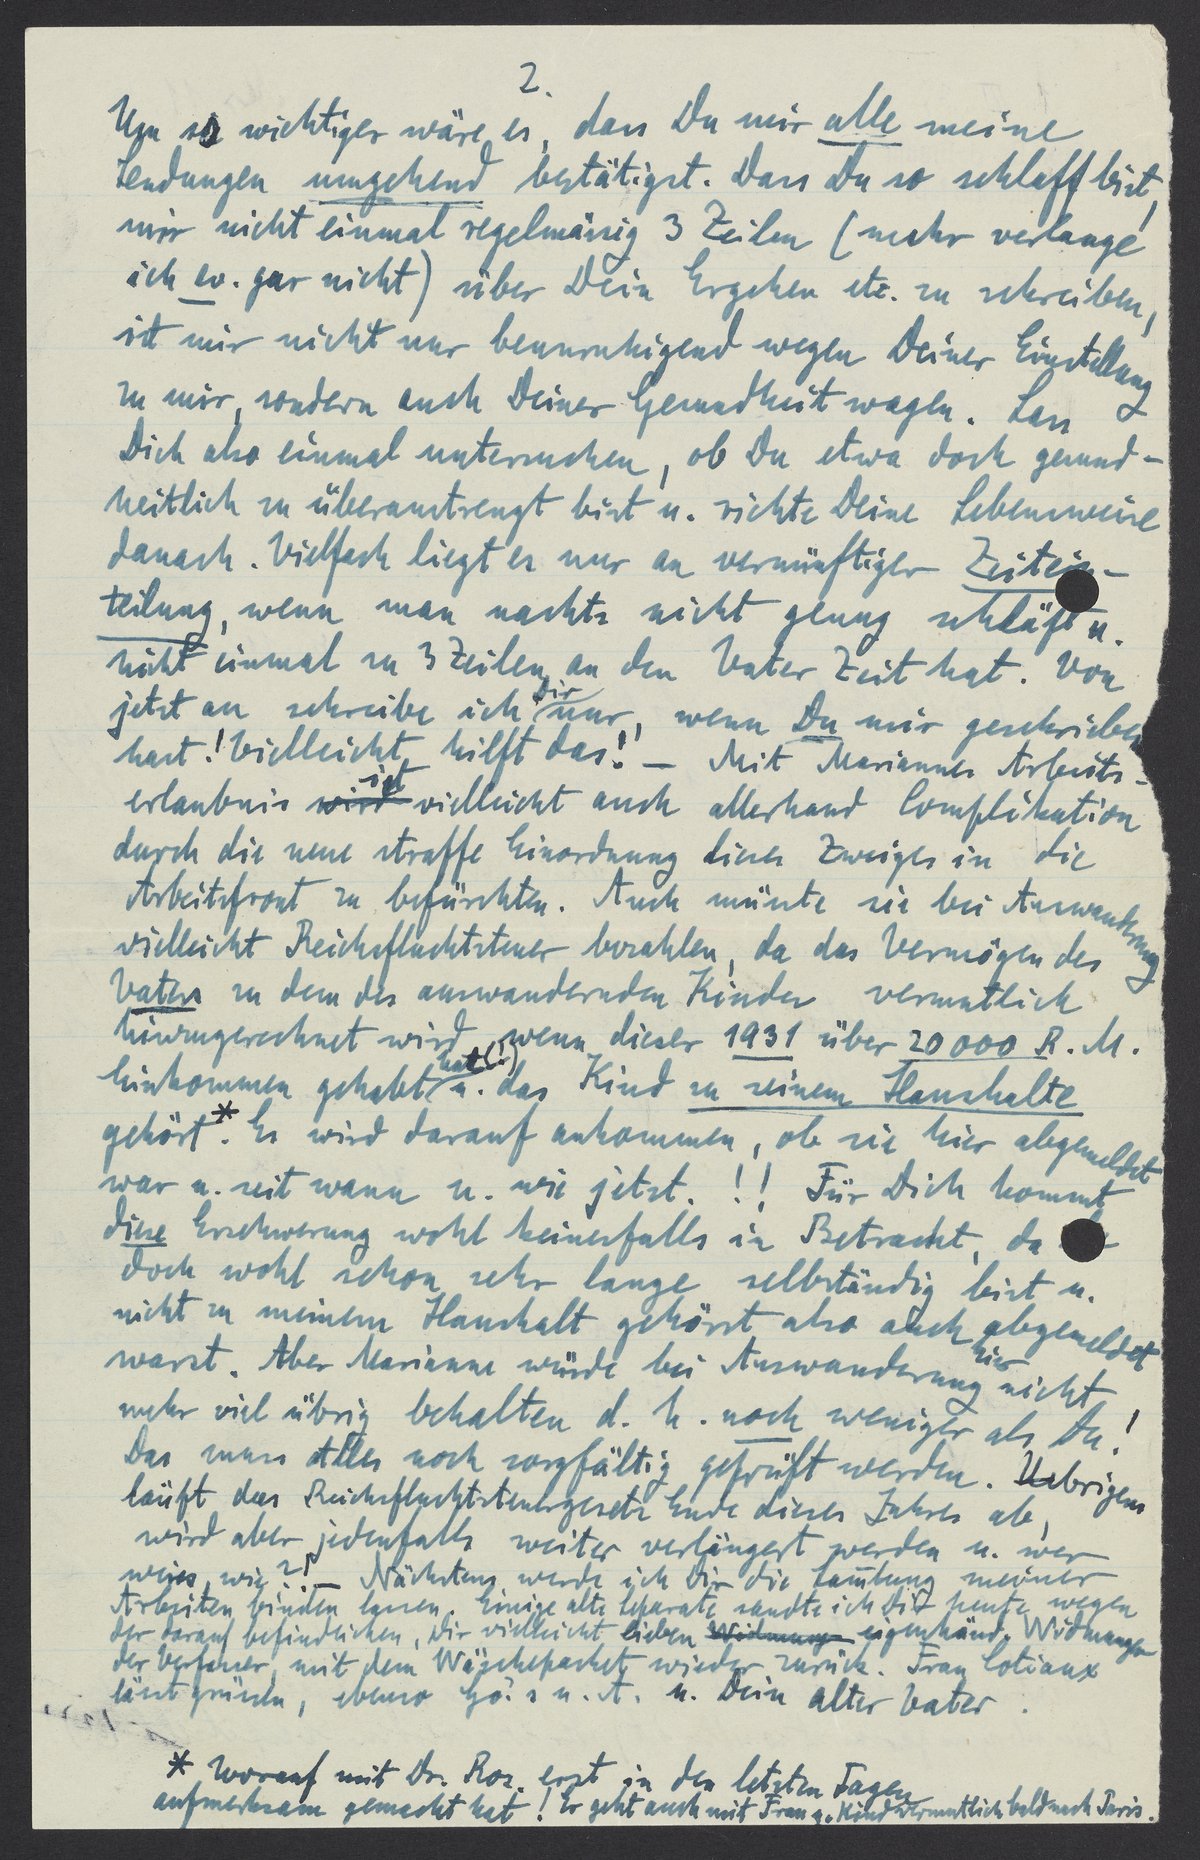 2.
Um so wichtiger wäre es, dass Du mir alle meine
Sendungen umgehend bestätigst. Dass Du so schlaff bist,
mir nicht einmal regelmässig 3 Zeilen (mehr verlange
ich ev. gar nicht) über Dein Ergehen etc. zu schreiben,
ist mir nicht nur beunruhigend wegen Deiner Einstellung
zu mir, sondern auch Deiner Gesundheit wegen. Lass
Dich also einmal untersuchen, ob Du etwa doch gesund-
heitlich zu überanstrengt bist u. richte Deine Lebensweise
danach. Vielfach liegt es nur an vernünftiger Zeitein-
teilung, wenn man nachts nicht genug schläft u.
nicht einmal zu 3 Zeilen an den Vater Zeit hat. Von
jetzt an schreibe ich Dir nur, wenn Du mir geschrieben
hast! Vielleicht hilft das! — Mit Mariannes Arbeits-
erlaubnis wird ist vielleicht auch allerhand Complikation
durch die neue straffe Einordnung dieses Zweiges in die
Arbeitsfront zu befürchten. Auch müsste sie bei Auswanderung
vielleicht Reichsfluchtsteuer bezahlen, da das Vermögen des
Vaters zu dem des auswandernden Kindes vermutlich
hinzugerechnet wird, wenn dieser 1931 über 20000 R. M.
Einkommen gehabt hat(!) u. das Kind zu seinem Haushalte
gehört*. Es wird darauf ankommen, ob sie hier abgemeldet
war u. seit wann u. wie jetzt. !! Für Dich kommt
diese Erschwerung wohl keinesfalls in Betracht, da
doch wohl schon sehr lange selbständig bist u.
nicht zu meinem Haushalt gehörst also auch abgemeldet
warst. Aber Marianne würde bei Auswanderung hier nicht
mehr viel übrig behalten d. h. noch weniger als Du!
Das muss alles noch sorgfältig geprüft werden. Uebrigens
läuft das Reichsfluchtsteuergesetz Ende dieses Jahres ab,
wird aber jedenfalls weiter verlängert werden u. wer
weiss, wie?! — Nächstens werde ich Dir die Samlung meiner
Arbeiten binden lassen. Einige alte Separate sandte ich Dir heute wegen
der darauf befindlichen, Dir vielleicht lieben Widmung eigenhänd. Widmungen
der Verfasser, mit dem Wäschepacket wieder zurück. Frau Cotiaux
lässt grüssen, ebenso Gö.s u. A. u. Dein alter Vater.
* Worauf mit Dr. Ros. erst in den letzten Tagen
aufmerksam gemacht hat! Er geht auch mit Frau u. Kind vermutlich bald nach Paris.